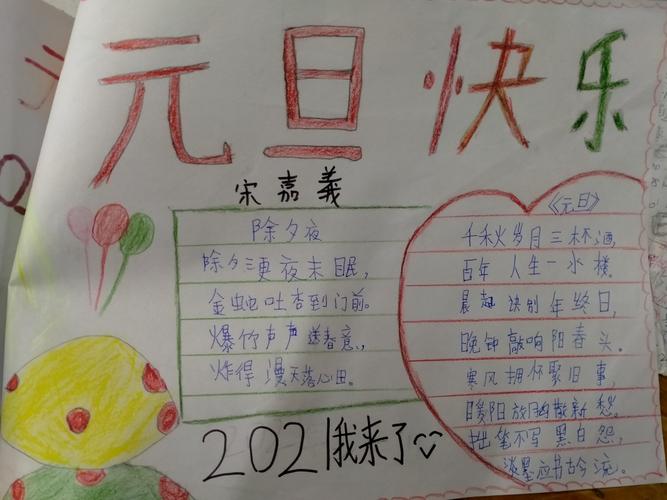 元旦快乐
宋嘉義
除夕夜
除夕三更夜未眠,
金蛇吐杏到门前。
爆竹声声送春意,
炸得漫天落心田。
2021我来了
《元旦》
千秋岁月三杯酒,
百年人生一水楼。
晨起诀别年终日,
晚钟敲响阳春头。
寒风拥怀聚旧事,
暖阳放胸散新愁。
拙笔不写黑白怨,
淡墨应书古今流。